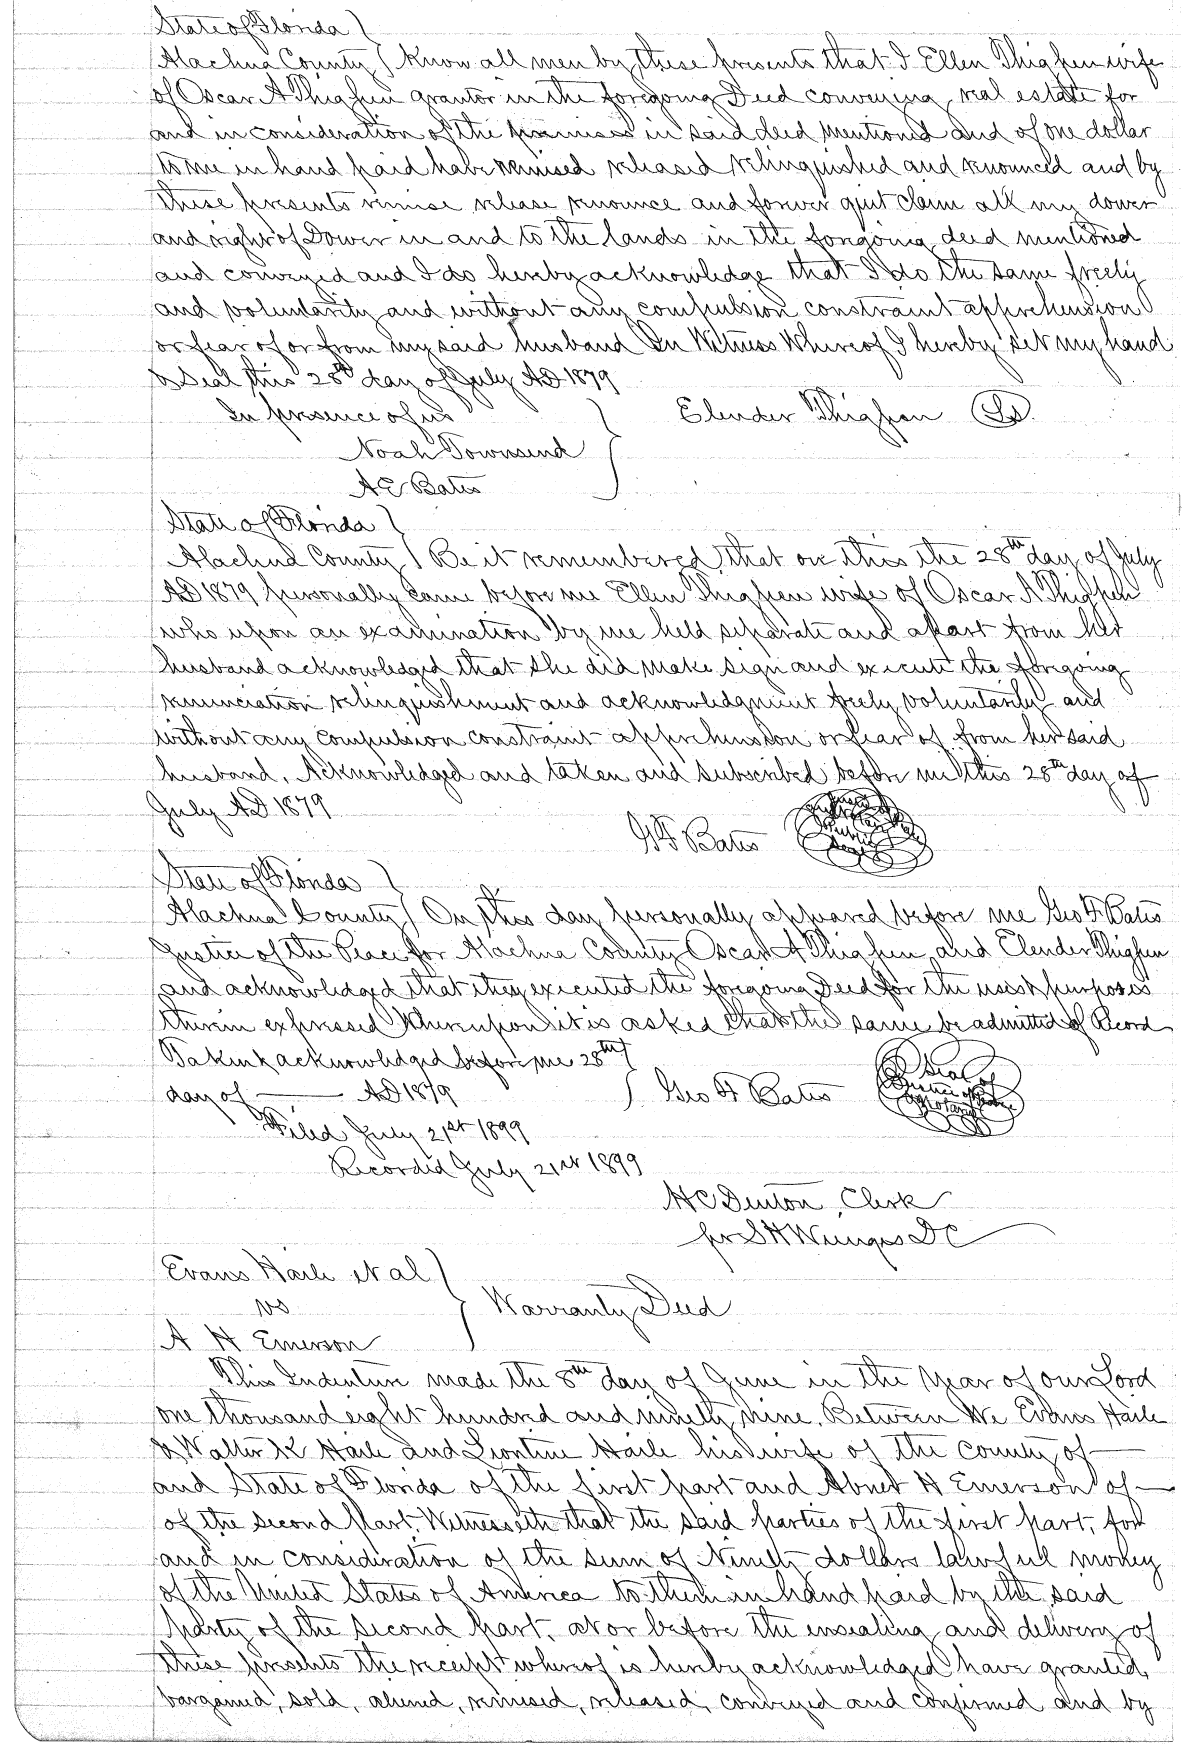 State of Florida }
Alachua County } Know all men by these presents that I Ellen Thigpen wife
of Oscar A Thigpen grantor in the foregoing Deed conveying real estate for
and in consideration of the premises in said deed mentioned and of one dollar
to me in hand paid have remised released relinquished and renounced and by
these presents remise release renounce and forever quit claim all my dower
and right of Dower in and to the lands in the foregoing deed mentioned
and conveyed and I do hereby acknowledge that I do the same freely
and voluntarily and without any compulsion constraint apprehension
or fear of or from my said husband In Witness Whereof I hereby set my hand
& Seal this 28th day of July AD 1879
In presence of us } Elender Thigpen Ls
Noah Townsend
A E Bates
State of Florida }
Alachua County } Be it remembered that on this the 28th day of July
AD 1879 personally came before me Ellen Thigpen wife of Oscar A Thigpen
who upon an examination by me held separate and apart from her
husband acknowledged that she did make sign and execute the foregoing
renunciation relinquishment and acknowledgment freely voluntarily and
without any compulsion constraint apprehension or fear of from her said
husband. Acknowledged and taken and subscribed before me this 28th day of
July AD 1879
G F Bates
State of Florida }
Alachua County } On this day personally appeared before me Geo F Bates
Justice of the Peace for Alachua County Oscar A Thigpen and Elender Thigpen
and acknowledged that they executed the foregoing Deed for the uses & purposes
therein expressed Whereupon it is asked that the same be admitted of Record
Taken & acknowledged before me 28th }
day of —— AD 1879 } Geo F Bates Seal of Justice of Peace
Filed July 21st 1899
Recorded July 21st 1899
H C Denton, Clerk
pr S H Wienges D C
Evans Haile et al }
vs } Warranty Deed
A H Emerson
This Indenture made the 8th day of June in the Year of our Lord
one thousand eight hundred and ninety nine. Between We Evans Haile
& Walter K Haile and Leontine Haile his wife of the county of ——
and State of Florida of the first part and Abnet H Emerson of —
of the second Part, Witnesseth that the said parties of the first part, for
and in consideration of the sum of Ninety dollars lawful money
of the United States of America to them in hand paid by the said
party of the second part, at or before the ensealing and delivery of
these presents the receipt whereof is hereby acknowledged have granted,
bargained, sold, aliened, remised, released, conveyed and confirmed and by